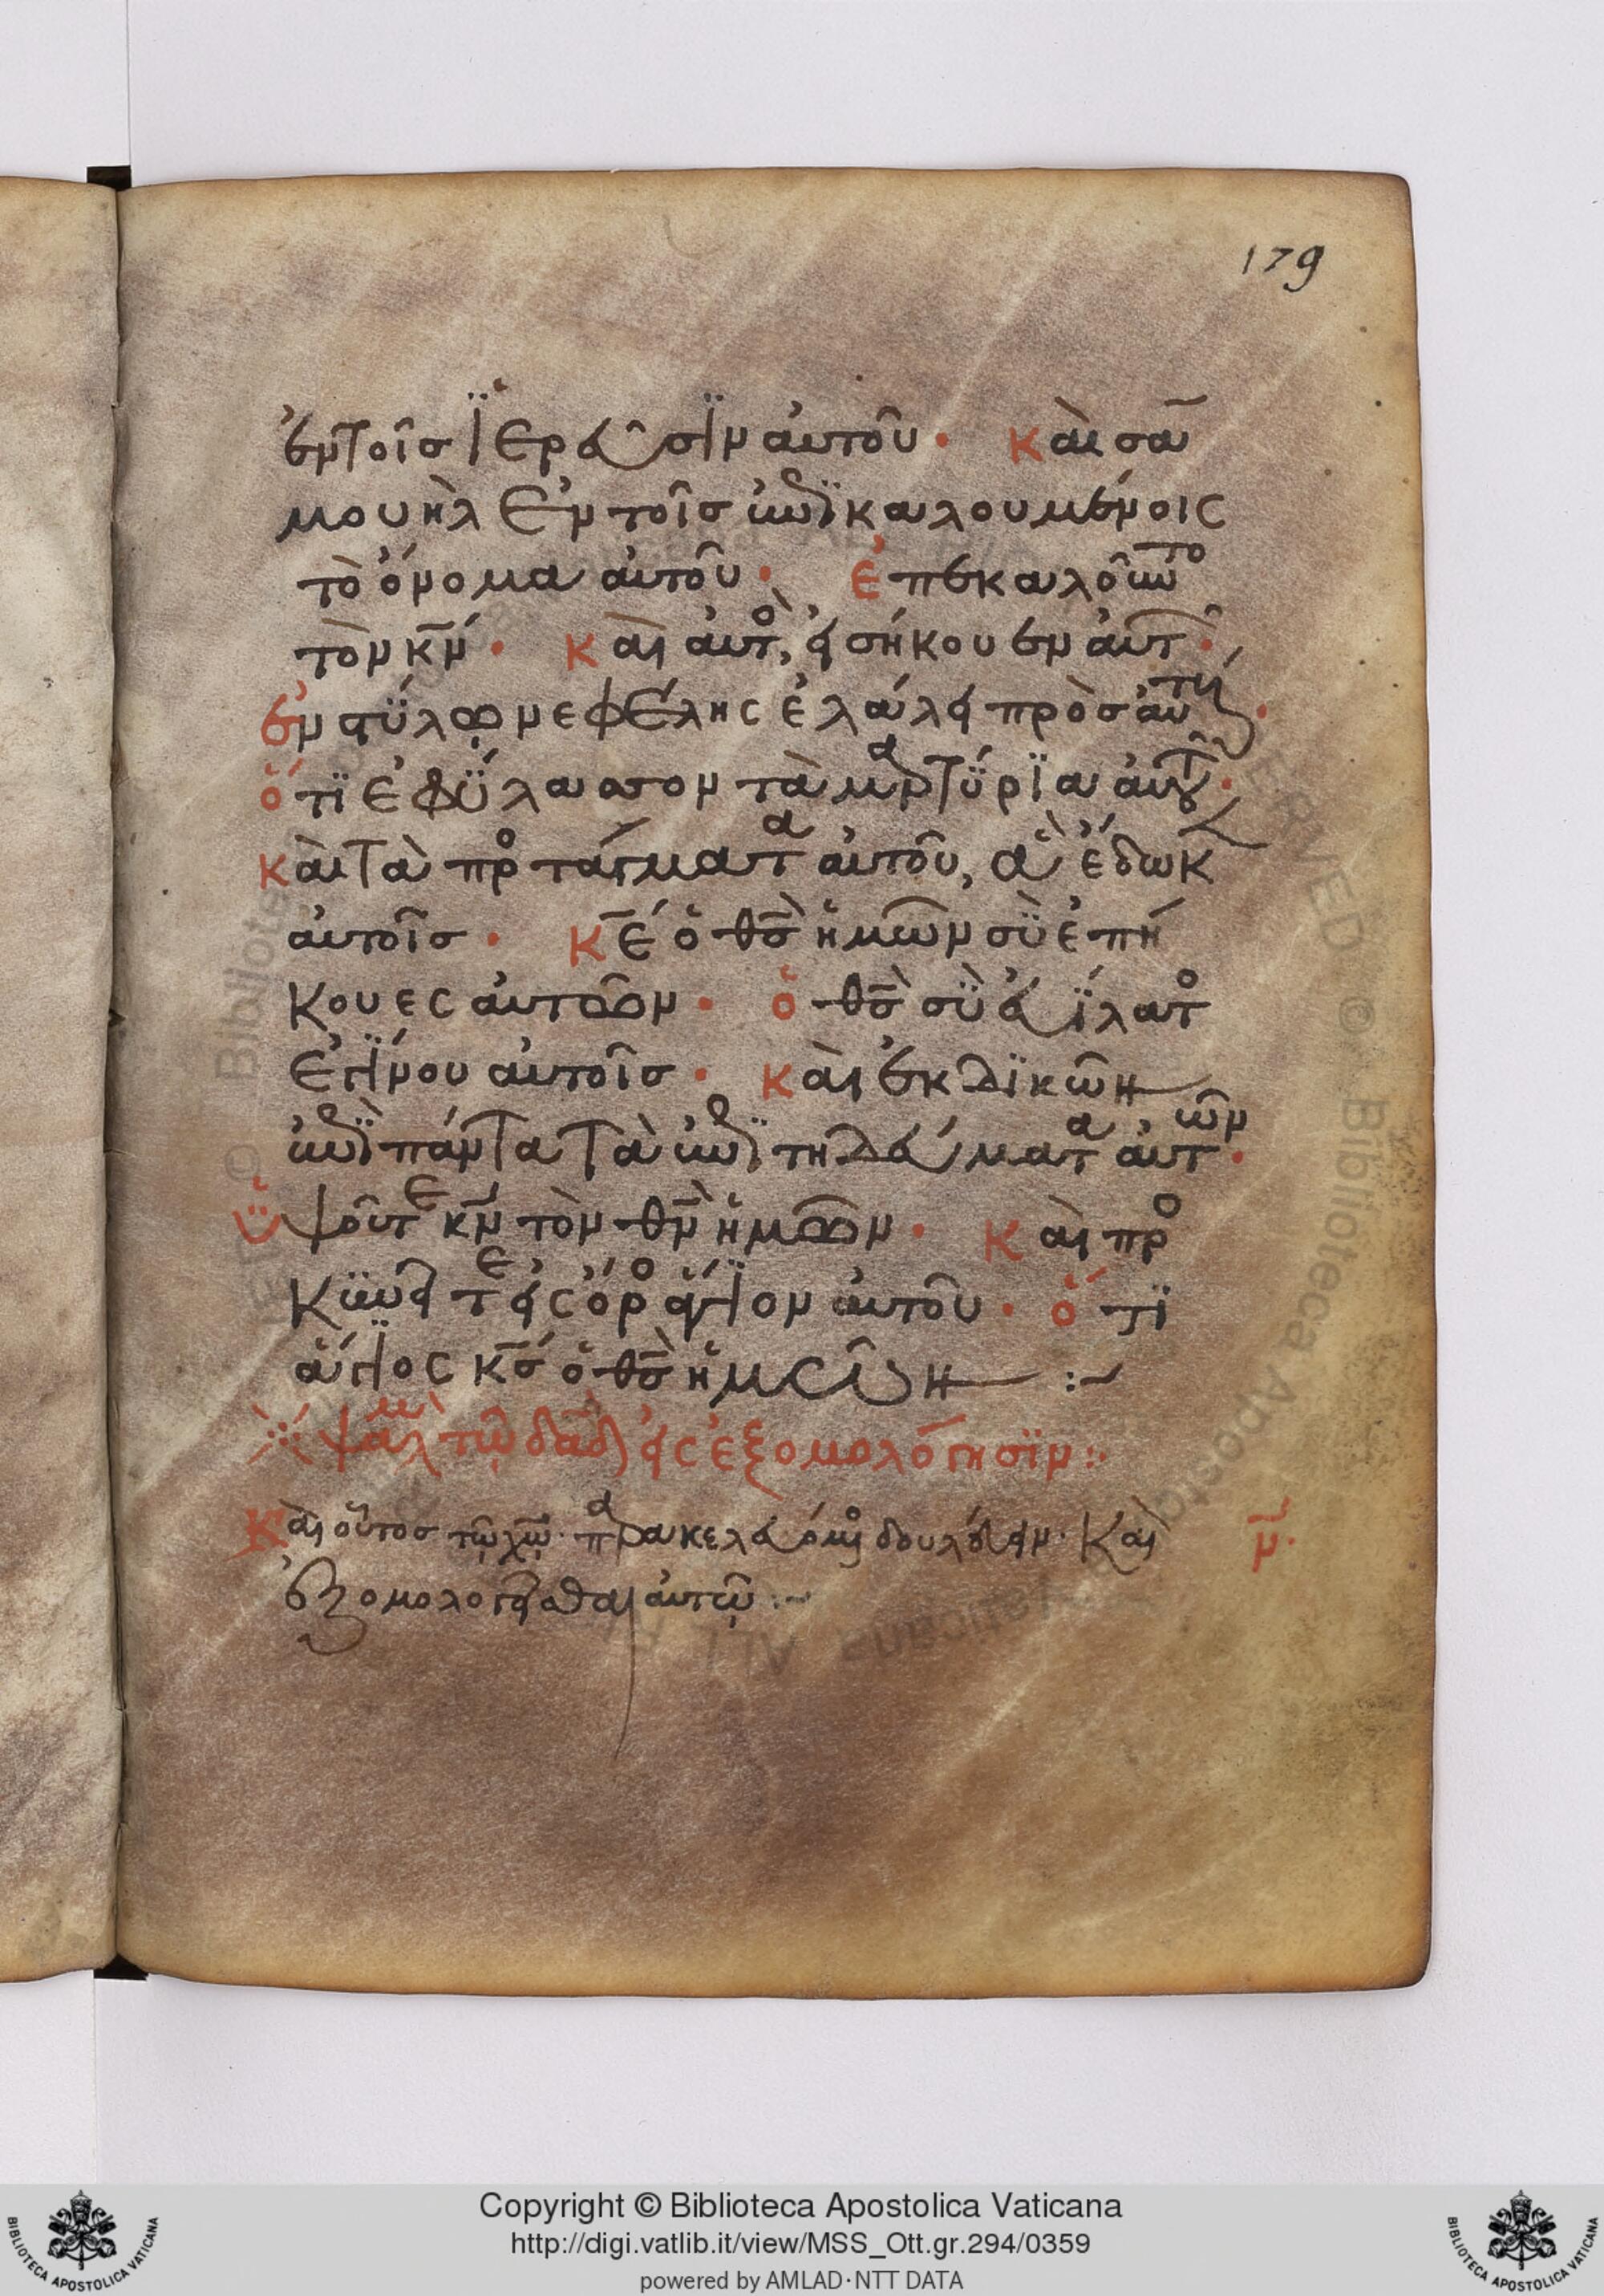 179
ἐν τοῖσ ϊερεῦσϊν αὐτοῦ· Καὶ σα
μουὴλ ἐν τοῖσ ἐπϊκαλουμένοις
τὸ ὄνομα αὐτοῦ· Ἐπεκαλοῦντο
τὸν κν· Καὶ αὐτὸ, εἰσήκουεν αὐτ·
ἐν στϋλω νεφέλης ἐλάλει πρὸσ αὐτούς·
ὅτϊ ἐφϋλασσον τὰ μαρτϋρϊα αὐτοῦ·
Καὶ τὰ προτάγματα αὐτοῦ, ἃ ἔδωκ
αὐτοῖσ· Κε ὁ θσ ἡμῶν σὺ ἐπή
κουες αὐτῶν· ὁ θσ σὺ εὐϊλατο
ἐγίνου αὐτοῖσ· Καὶ ἐκδϊκῶν
ἐπϊ πάντα τὰ ἐπϊτηδεύματα αὐτῶν·
Ὑψοῦτε κν τὸν θν ἡμῶν· Καὶ προ
κυνεῖτε εἰς ὄρος ἅγϊον αὐτοῦ· ὅτϊ
ἅγϊος κσ ὁ θσ ἡμῶν :~
ψαλμ τῶ δαδ εἰς ἐξομολόγησϊν :·
Καὶ οὗτοσ τῶ λῶ· παρακελευόμ δουλεύειν· Καὶ
ἐξομολογεῖσθαι αὐτῶ :~
Copyright © Biblioteca Apostolica Vaticana
http://digi.vatlib.it/view/MSS_Ott.gr.294/0359
powered by AMLAD·NTT DATA
BIBLIOTECA APOSTOLICA VATICANA
BIBLIOTECA APOSTOLICA VATICANA